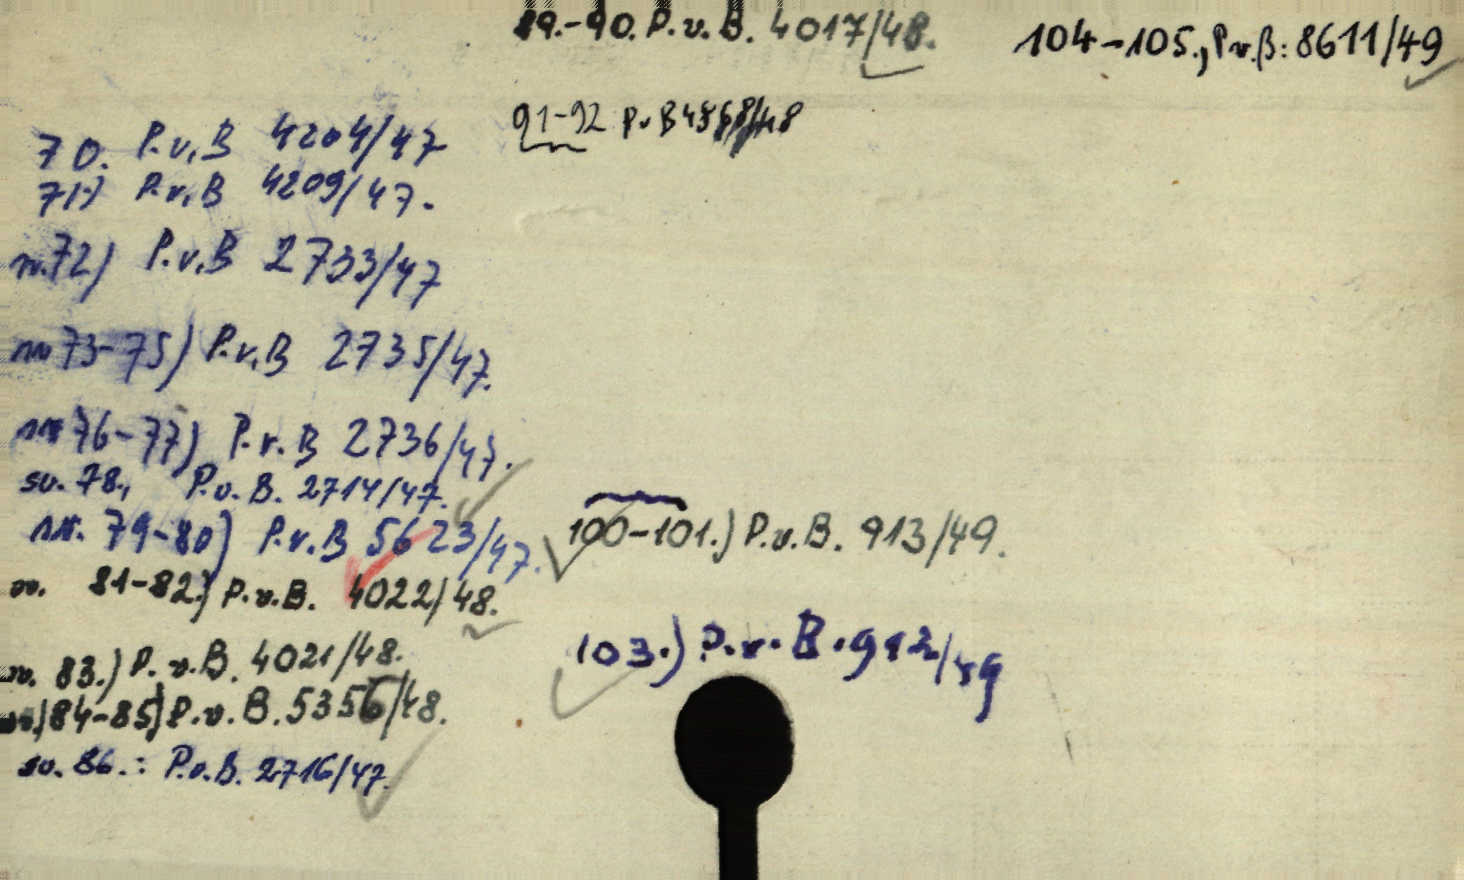 70. P.v.B 4204/47
71.) P.v.B 4209/47.
sv.72) P.v.B 2733/47
sv 73-75) P.v.B 2735/47.
sv 76-77) P.v.B 2736/47.
sv. 78., P.v.B. 2714/47.
sv. 79-80) P.v.B 5623/47.
sv. 81-82.) P.v.B. 4022/48.
sv. 83.) P.v.B. 4021/48.
sv.) 84-85) P.v.B. 5356/48.
sv. 86.: P.v.B. 2716/47.
89.-90. P.v.B. 4017/48.
91-92 P.v B
100-101.) P.v.B. 913/49.
103.) P.v.B.912/49
104-105., P.v.B: 8611/49